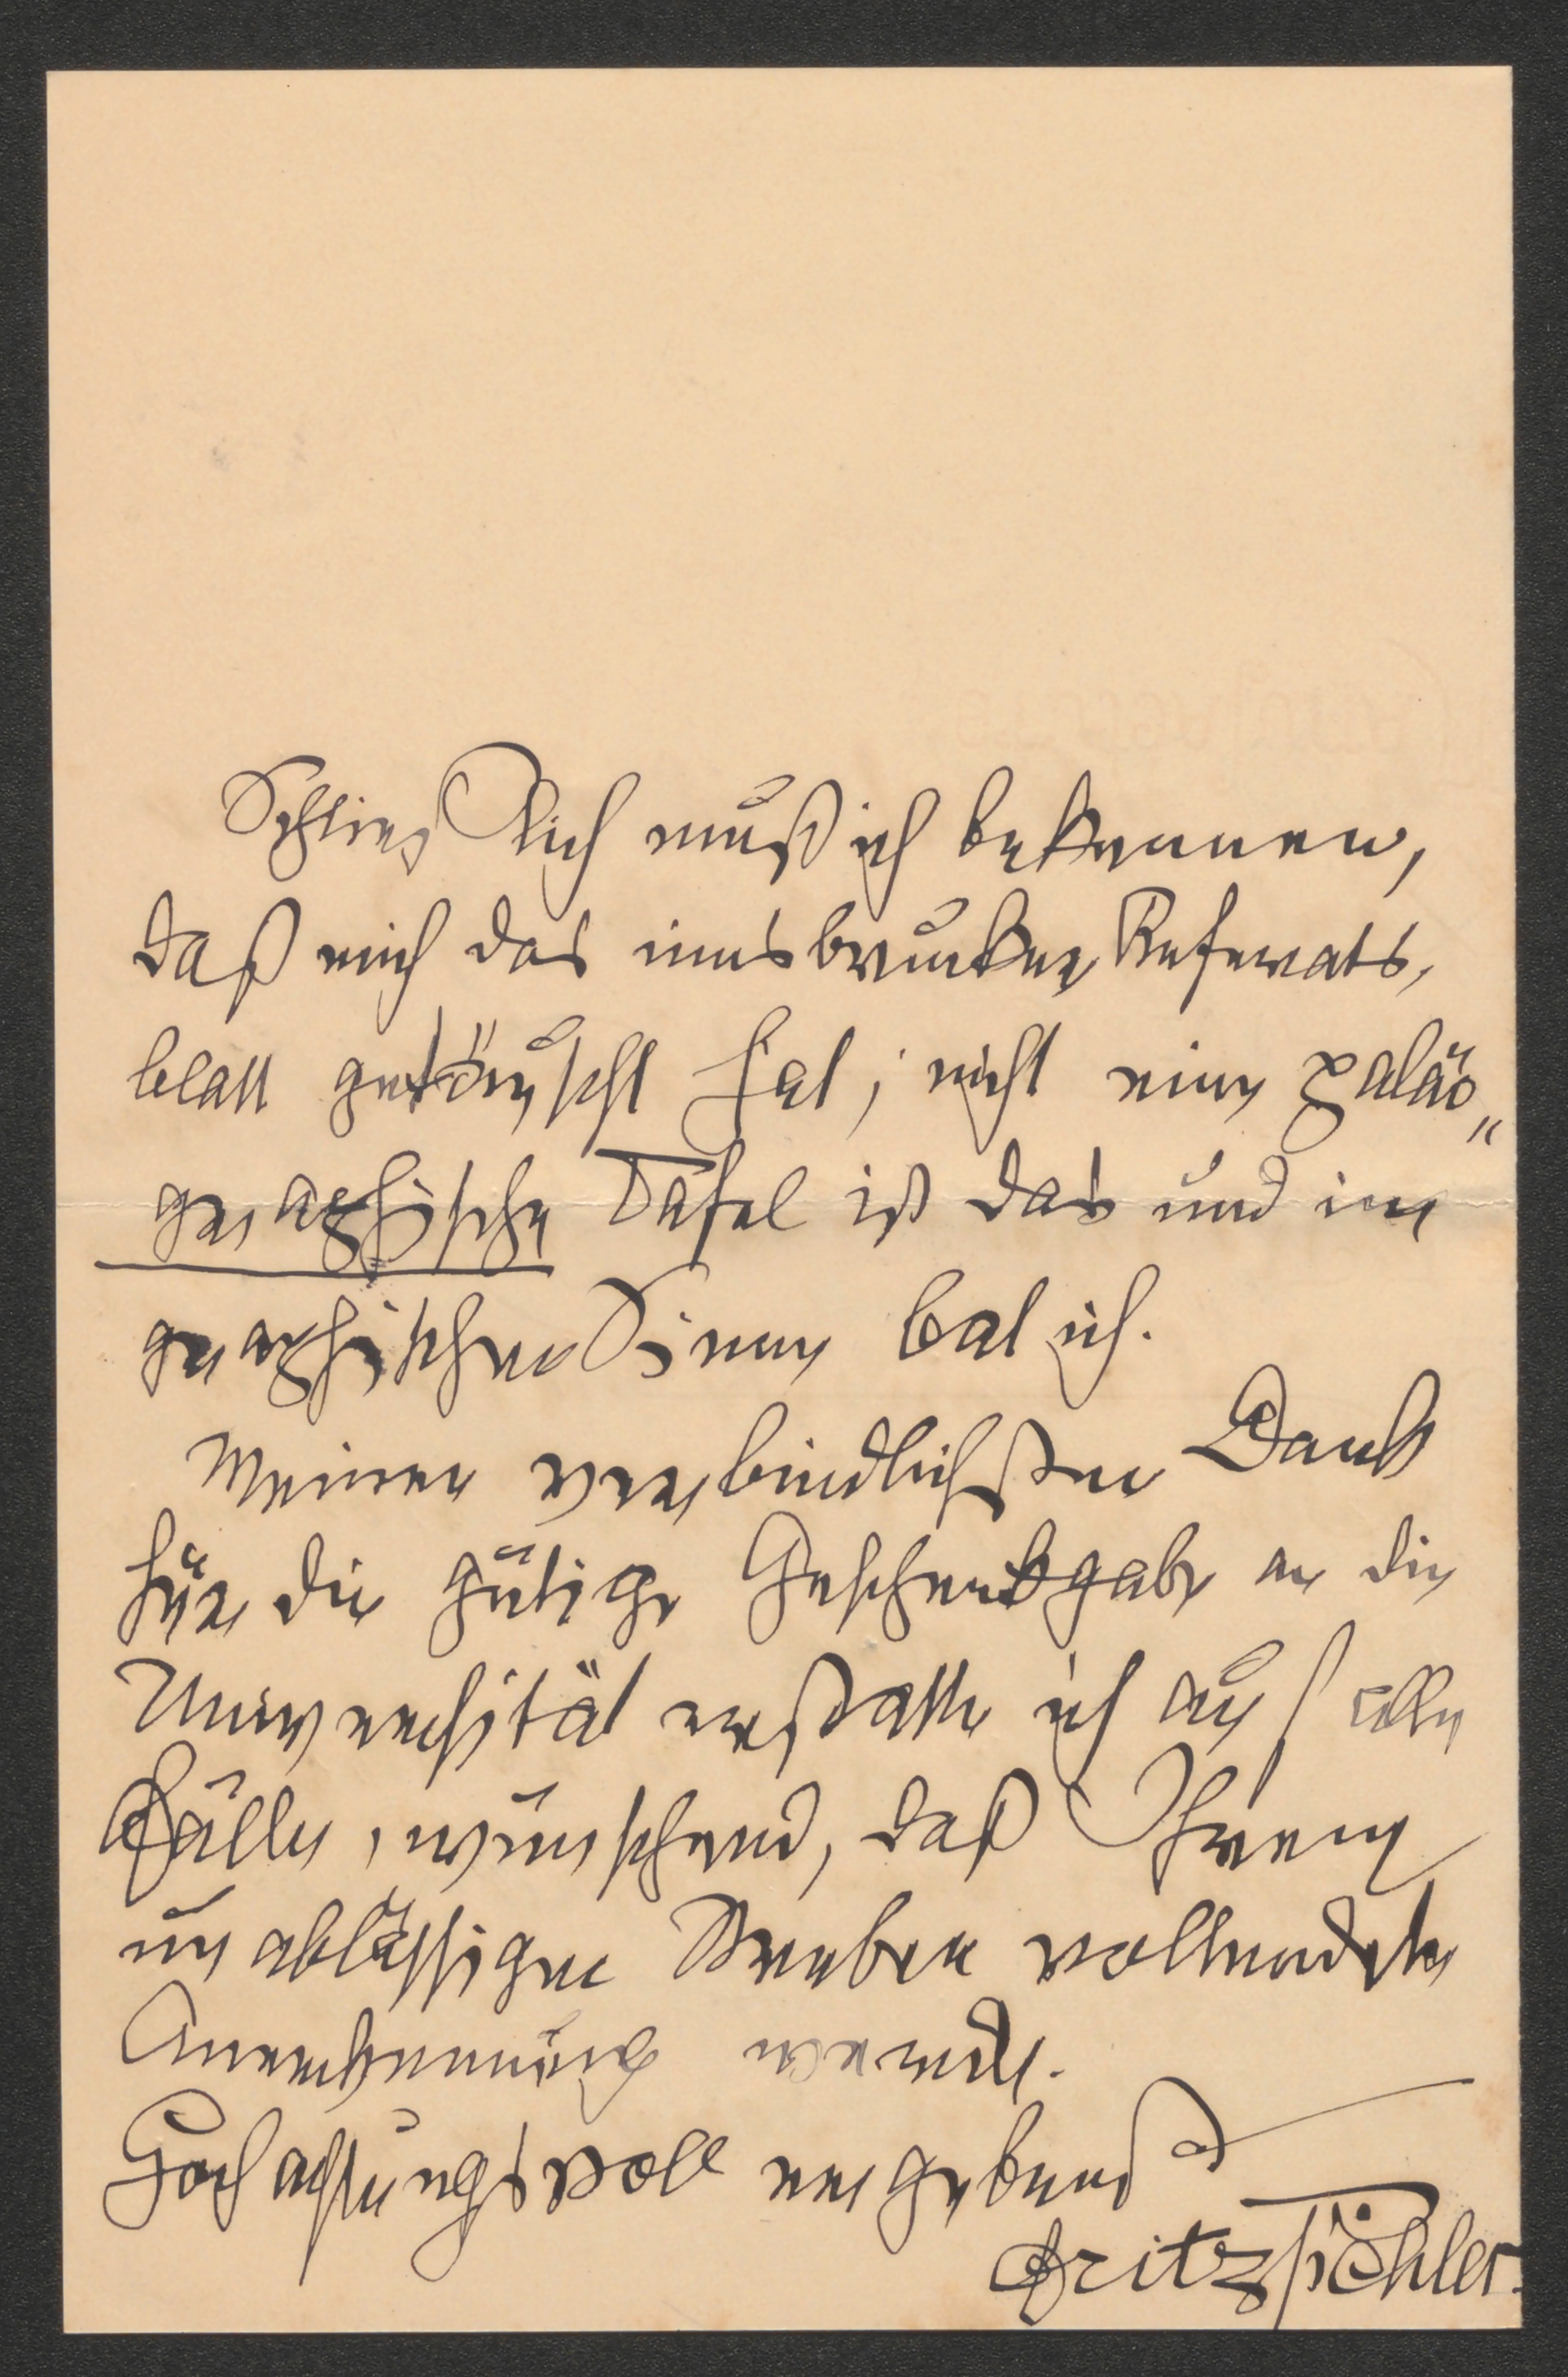 Schliesslich muß ich bekennen,
daß mich das innsbrucker Referats,
blatt getäuscht hat; nicht eine paläo„
graphische Tafel ist das und im
graphischen Sinne bat ich.
Meinen verbindlichsten Dank
für die gütige Geschenkgabe an die
Universität erstatte ich auf alle
Fälle, wünschend, daß Ihrem
unablässigen Streben vollendete
Anerkennung werde.
Hochachtungsvoll ergebenst
Fritz Pichler.